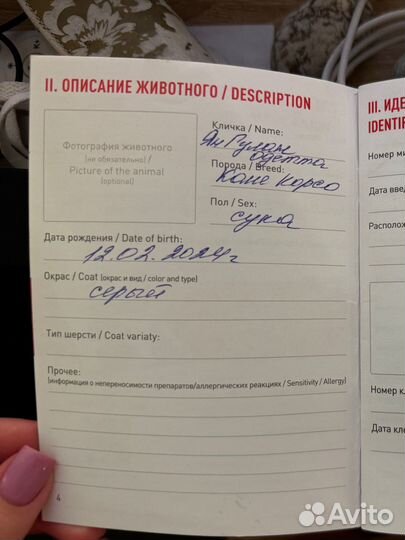 II. ОПИСАНИЕ ЖИВОТНОГО / DESCRIPTION
Фотография животного
(не обязательно) /
Picture of the animal
(optional)
Кличка / Name:
Ян Гулан
Одетта
Порода / Breed:
Кане корсо
Пол / Sex:
сука
Дата рождения / Date of birth:
12.02.2024 г
Окрас / Coat (окрас и вид / color and type)
серый
Тип шерсти / Coat variaty:
Прочее:
(информация о непереносимости препаратов/аллергических реакциях / Sensitivity / Allergy)
4
III. ИДЕ
IDENTIF
Номер ми
Дата введ
Располож
Номер к
Дата кле
Avito